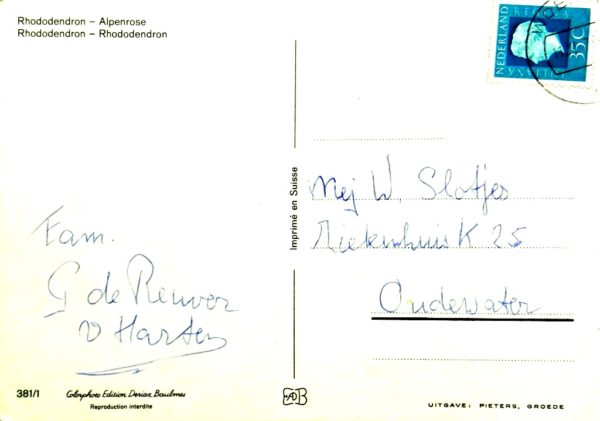 Rhododendron – Alpenrose
Rhododendron – Rhododendron
NEDERLAND
REGINA
JULIANA
35C
Imprimé en Suisse
Mej W. Slotjes
Ziekenhuis K 25
Oudewater
Fam.
G de Reuver
v Harten
381/I
Colorphoto Edition Deriaz Baulmes
Reproduction interdite
UITGAVE: PIETERS, GROEDE